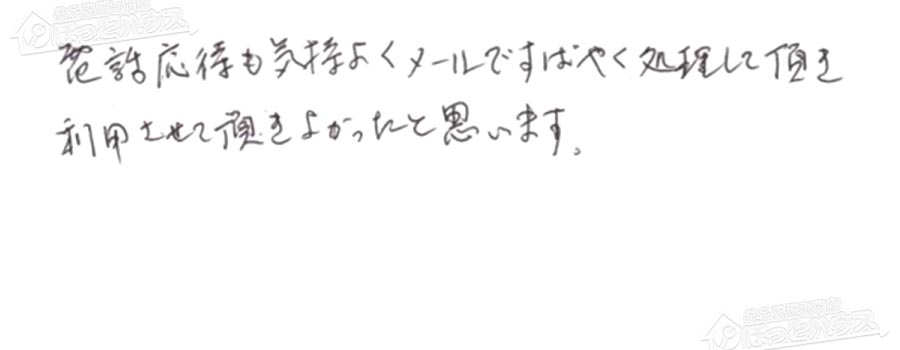 電話応待も気持よくメールですばやく処理して頂き
利用させて頂きよかったと思います。
ほっとハウス
ほっとハウス